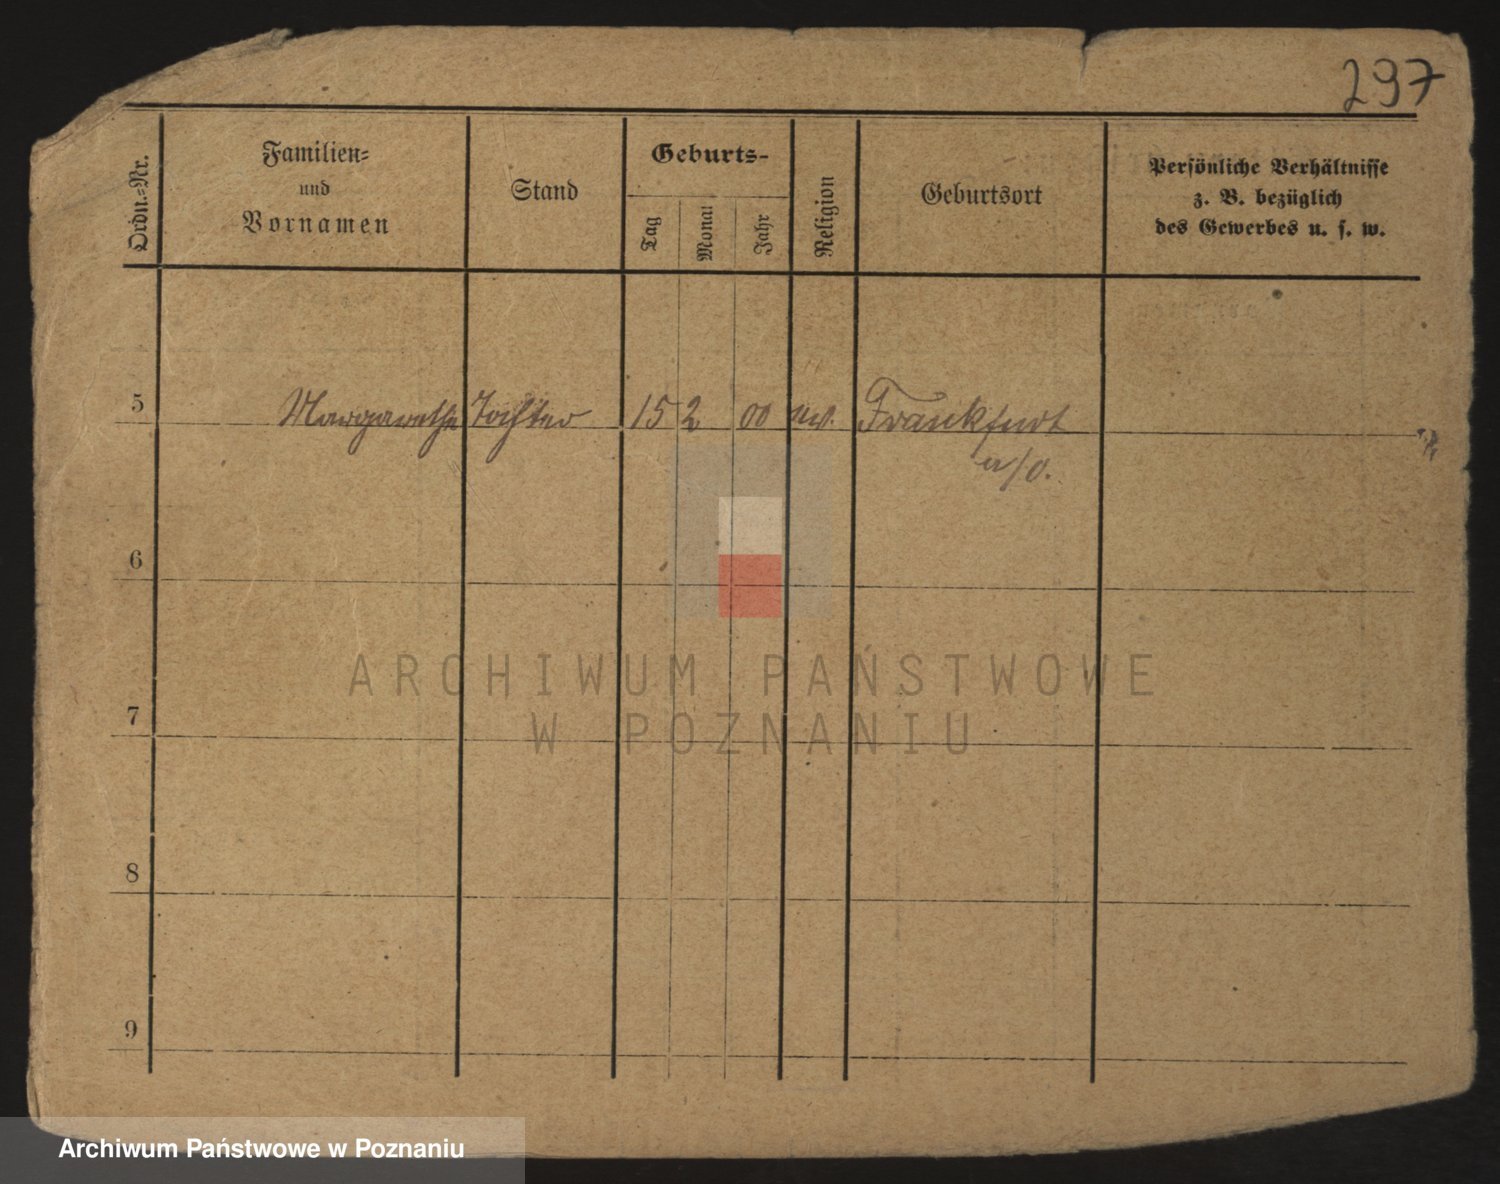 297
Ordn.-Nr.
Familien-
und
Vornamen
Stand
Geburts-
Tag
Monat
Jahr
Religion
Geburtsort
Persönliche Verhältnisse
z. B. bezüglich
des Gewerbes u. s. w.
5 Margarethe Tochter 15 2 00 Frankfurt
a/O.
6
7
8
9
ARCHIWUM PAŃSTWOWE
W POZNANIU
Archiwum Państwowe w Poznaniu